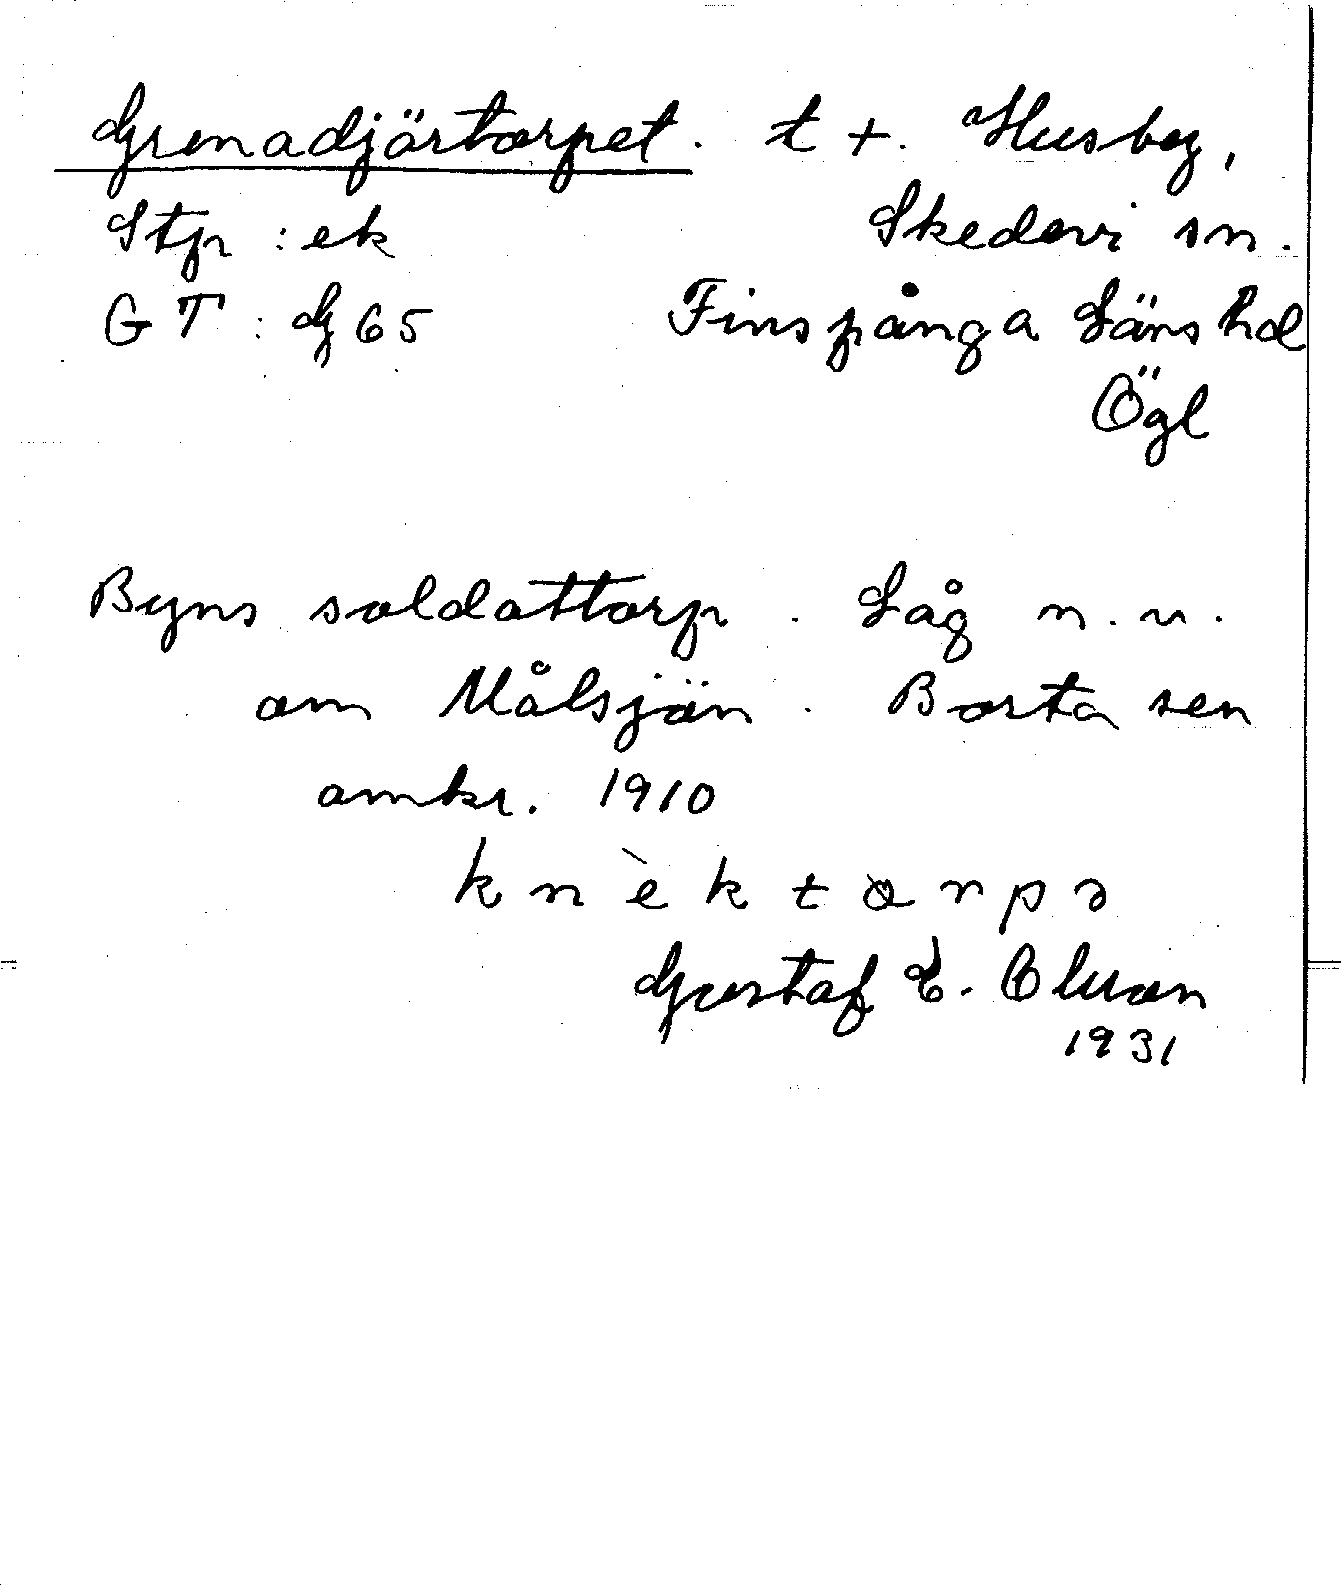 Grenadjärtorpet. t +. Husby,
Stp : ek Skedevi sn.
GT : G 65 Finspånga Läns hd
Ögl
Byns soldattorp. Låg n.v.
om Målsjön. Borta sen
omkr. 1910
knèktorpə
Gustaf E. Olsson
1931